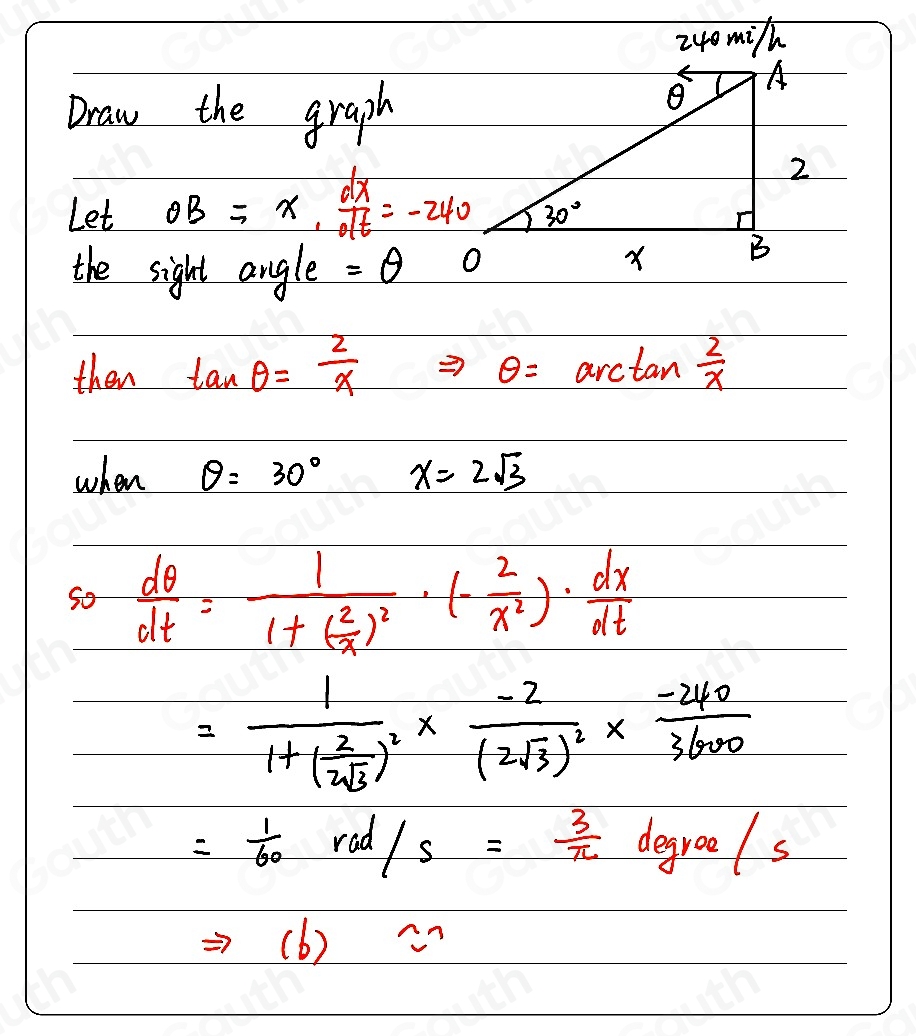 240 mi/h
θ A
Draw the graph
2
Let OB = x, dx/dt = -240
30°
the sight angle = θ
O x B
then tan θ = 2/x ⇒ θ = arctan 2/x
when θ = 30° x = 2√3
so dθ/dt = 1/(1+(2/x)²) · (-2/x²) · dx/dt
= 1/(1+(2/2√3)²) × -2/(2√3)² × -240/3600
= 1/60 rad/s = 3/π degree/s
⇒ (b)
Gauth